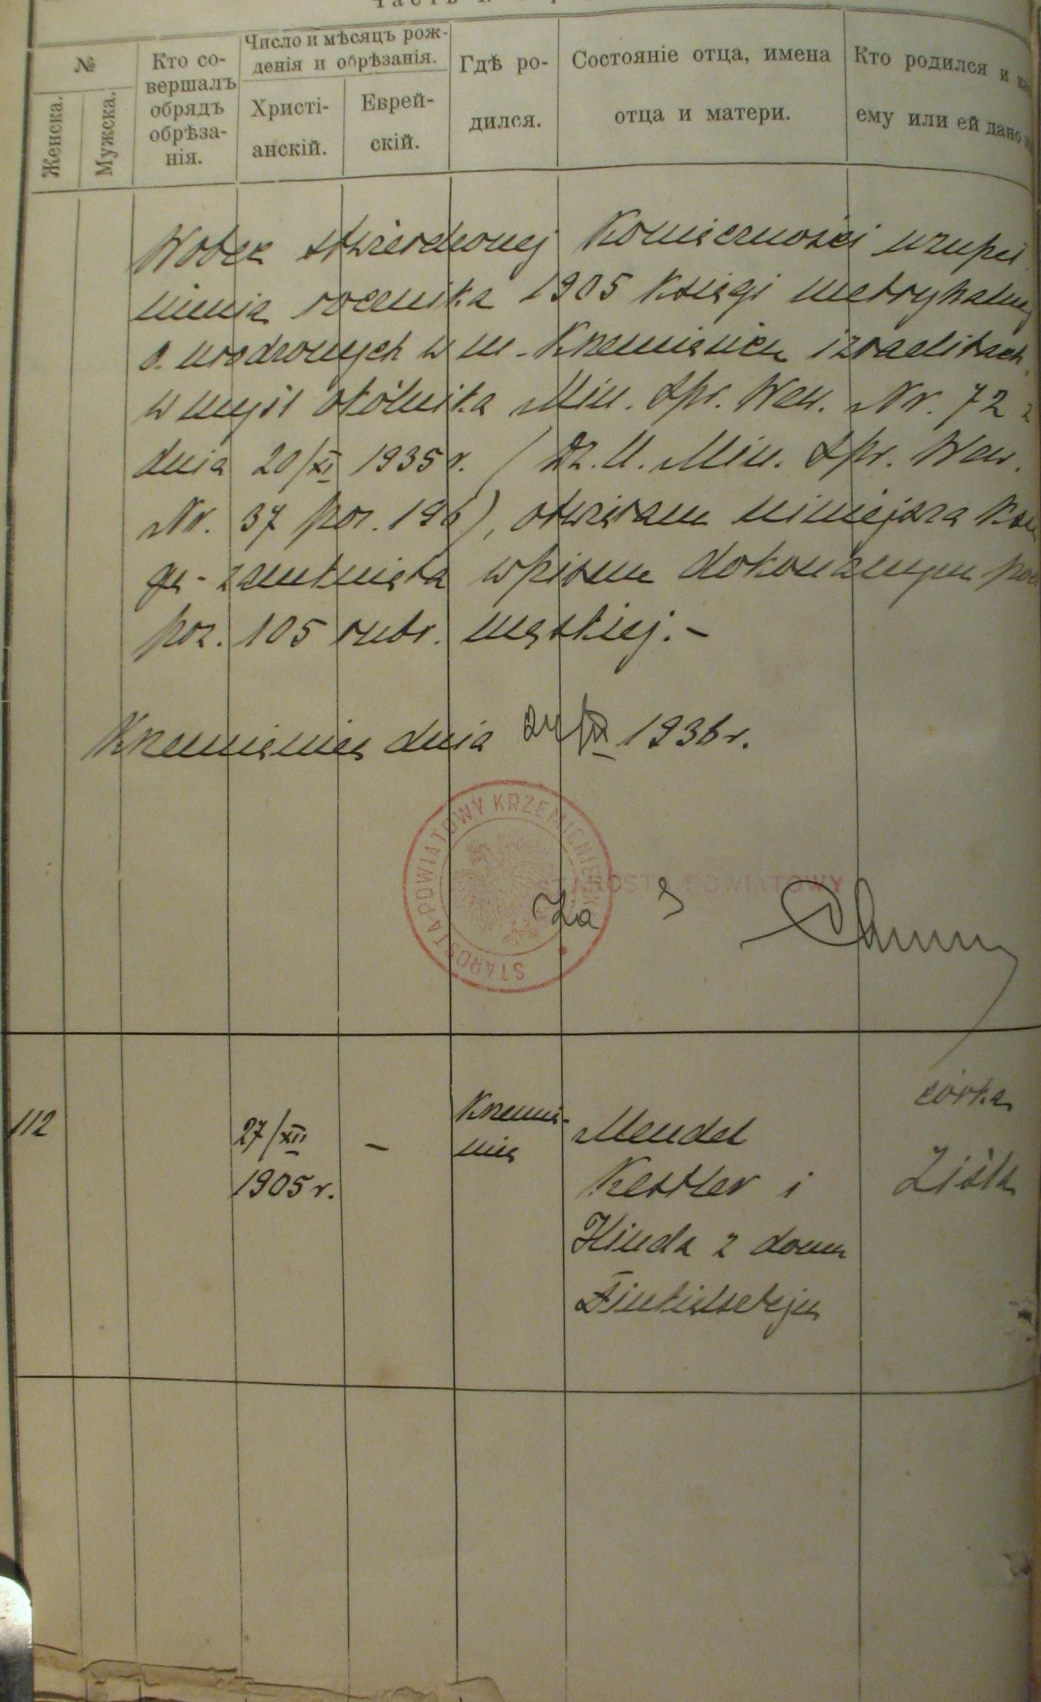 Часть I.
№
Женска.
Мужска.
Кто со-
вершалъ
обрядъ
обрѣза-
нія.
Число и мѣсяцъ рож-
денія и обрѣзанія.
Христі-
анскій.
Еврей-
скій.
Гдѣ ро-
дился.
Состояніе отца, имена
отца и матери.
Кто родился и
ему или ей дано
Wobec stwierdzonej konieczności uzupeł
nienia rocznika 1905 księgi metrykalnej
o urodzonych w m. Krzemieńcu izraelitach,
w myśl okólnika Min. Spr. Wew. Nr. 72 z
dnia 20/XI 1935 r. (Dz. U. Min. Spr. Wew.
Nr. 37 poz. 196), otwieram niniejszą księ
gę - zamkniętą wpisem dokonanym pod
poz. 105 rubr. męskiej. -
Krzemieniec dnia 24/IX 1936 r.
STAROSTA POWIATOWY KRZEMIENIECKI
STAROSTA POWIATOWY
Za
112
27/XII
1905 r.
-
Krzemie-
niec
Mendel
Kestler i
Hinda z domu
córka